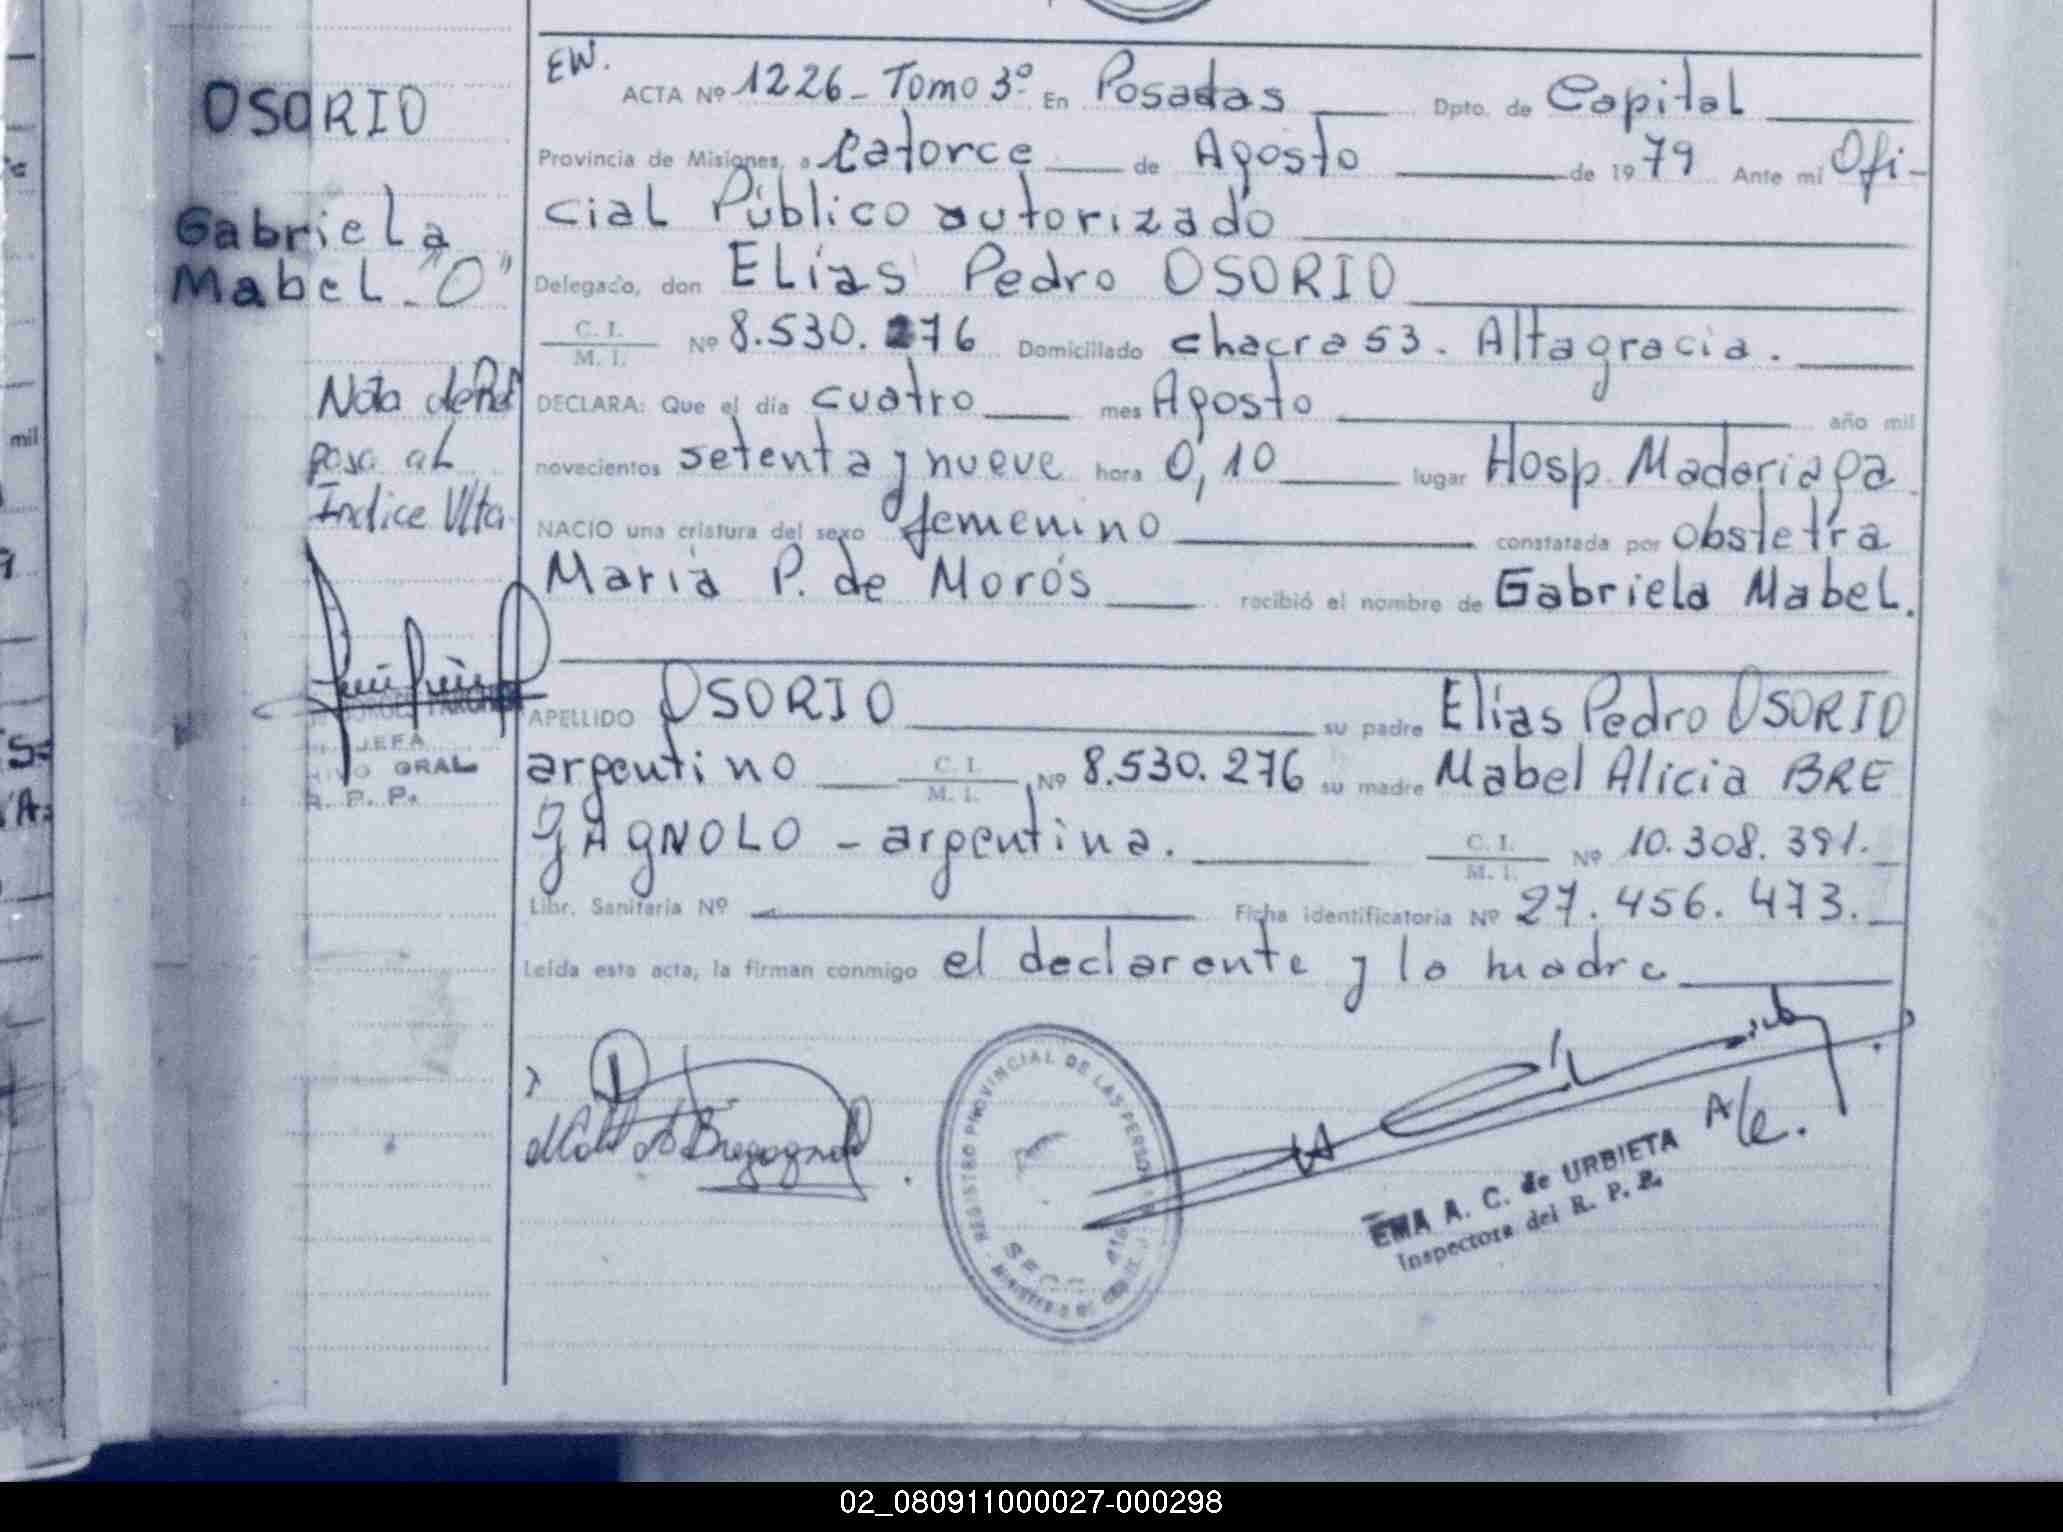 EW.
ACTA Nº 1226 - Tomo 3º En Posadas Dpto. de Capital
Provincia de Misiones, a Catorce de Agosto de 1979 Ante mi Ofi-
cial Público autorizado
Delegado, don Elías Pedro OSORIO
C. I. / M. I. Nº 8.530.276 Domiciliado chacra 53. Altagracia.
DECLARA: Que el día cuatro mes Agosto año mil
novecientos setenta y nueve hora 0,10 lugar Hosp. Madariaga.
NACIO una criatura del sexo femenino constatada por obstetra
María P. de Morós recibió el nombre de Gabriela Mabel.
APELLIDO OSORIO su padre Elías Pedro OSORIO
argentino C. I. / M. I. Nº 8.530.276 su madre Mabel Alicia BRE
GAGNOLO - argentina. C. I. / M. I. Nº 10.308.391.
Libr. Sanitaria Nº Ficha identificatoria Nº 27.456.473.
Leída esta acta, la firman conmigo el declarante y la madre
OSORIO
Gabriela
Mabel - "O"
Nota de
pasa al
Indice Ulta.
JEFA
GRAL
R. P. P.
REGISTRO PROVINCIAL DE LAS PERSONAS
EMA A. C. de URBIETA
Inspectora del R. P. P.
mil
02_080911000027-000298